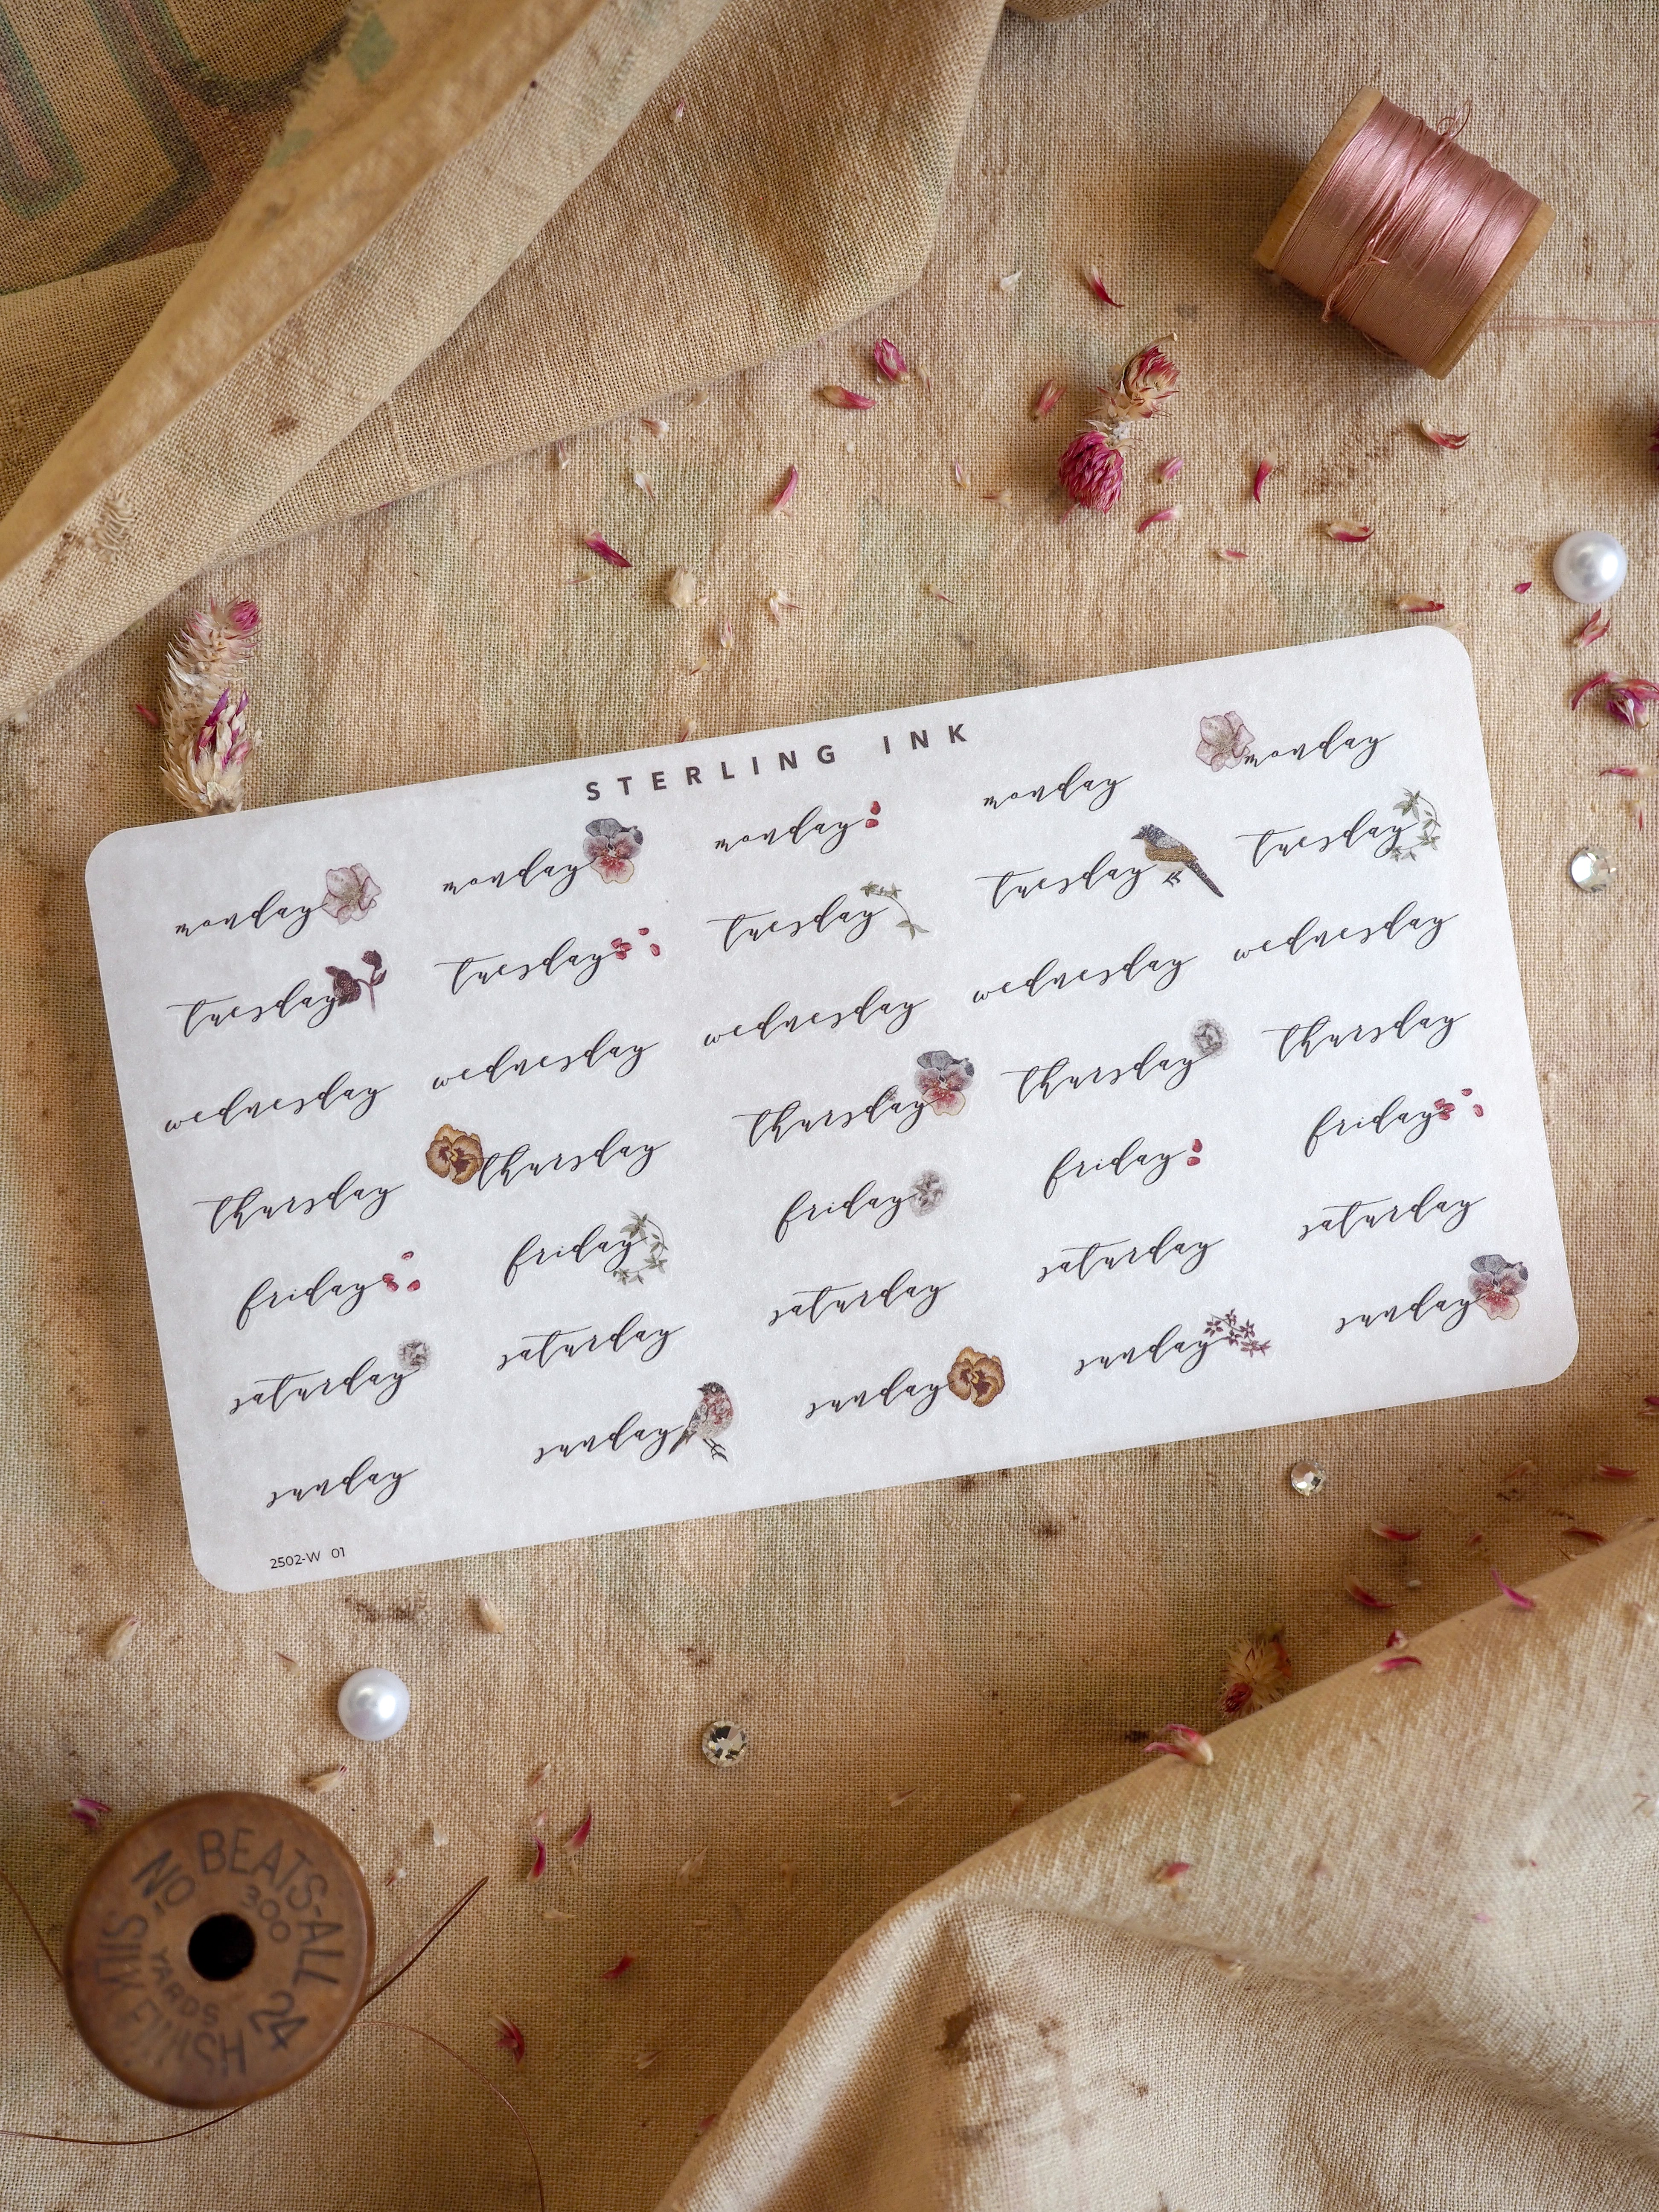 STERLING INK
monday monday monday monday monday
tuesday tuesday tuesday tuesday tuesday
wednesday wednesday wednesday wednesday wednesday
thursday thursday thursday thursday thursday
friday friday friday friday friday
saturday saturday saturday saturday saturday
sunday sunday sunday sunday sunday
2502-W 01
BEATS-ALL
NO 24
300
YARDS
FINISH